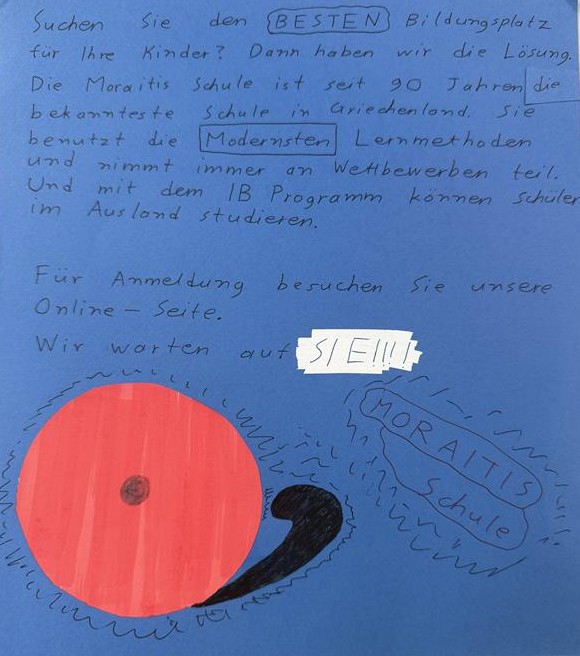 Suchen Sie den BESTEN Bildungsplatz
für Ihre Kinder? Dann haben wir die Lösung.
Die Moraitis Schule ist seit 90 Jahren die
bekannteste Schule in Griechenland. Sie
benutzt die Modernsten Lernmethoden
und nimmt immer an Wettbewerben teil.
Und mit dem IB Programm können Schüler
im Ausland studieren.
Für Anmeldung besuchen Sie unsere
Online - Seite.
Wir warten auf SIE!!!!
MORAITIS
Schule